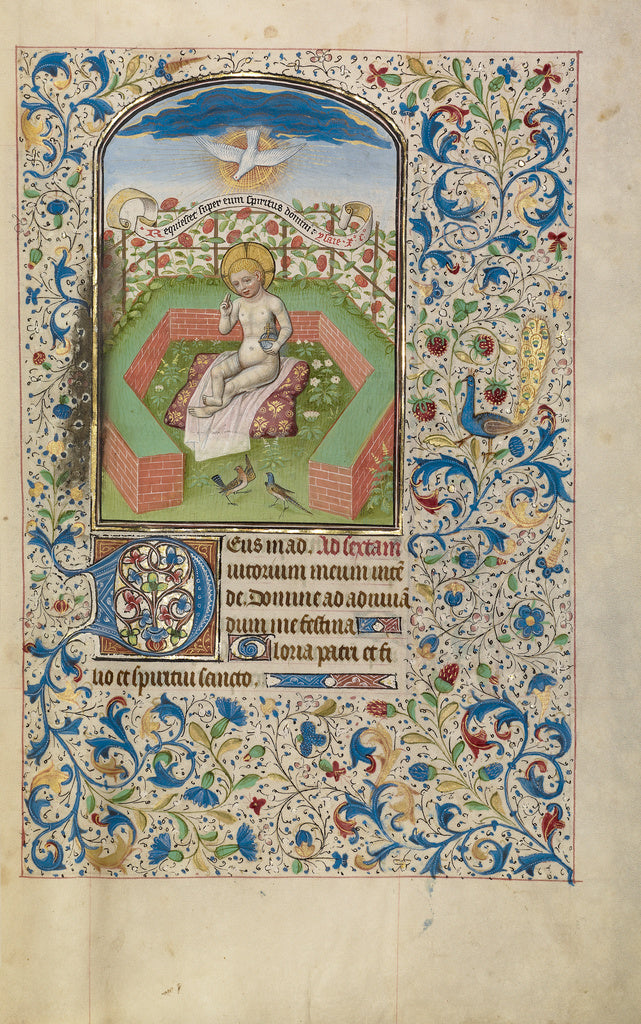 Requiescet super eum spiritus domini: ysaie. xi. c
Deus in ad. Ad sextam
iutorium meum inten
de. Domine ad adiuuā
dum me festina
Gloria patri et fi
lio et spiritui sancto.